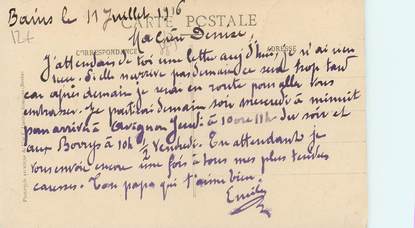 Bains le 11 Juillet 1916
CARTE POSTALE
Ma chère Denise,
CORRESPONDANCE
ADRESSE
J'attendais de toi une lettre aujd'hui, je n'ai rien
reçu. Si elle n'arrive pas demain ce sera trop tard
car après demain je serai en route pour aller vous
embrasser. Je partirai demain soir mercredi à minuit
pour arriver à Avignon Jeudi à 10 ou 11h du soir et
aux Borrys à 10h ½ Vendredi. En attendant je
vous envoie encore une fois à tous mes plus tendres
caresses. Ton papa qui t'aime bien.
Emile